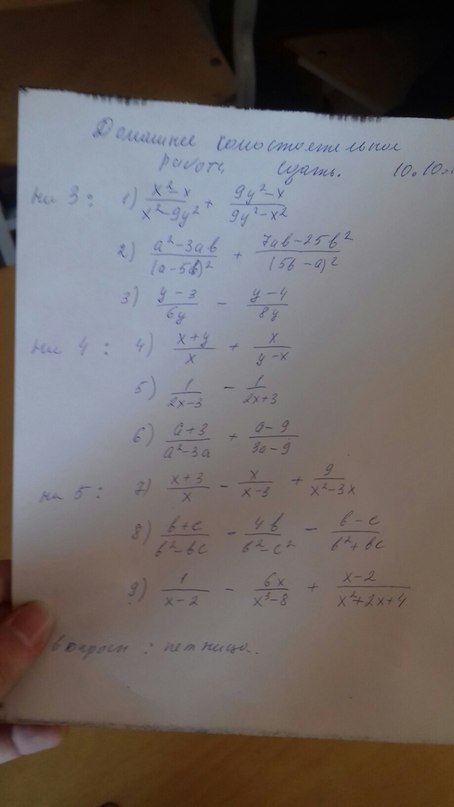 Домашнее самостоятельная
работа сдать. 10.10.
на 3: 1) (x²-x)/(x²-9y²) + (9y²-x)/(9y²-x²)
2) (a²-3ab)/(a-5b)² + (7ab-25b²)/(5b-a)²
3) (y-3)/6y - (y-4)/8y
на 4: 4) (x+y)/x + x/(y-x)
5) 1/(2x-3) - 1/(2x+3)
6) (a+3)/(a²-3a) + (a-9)/(3a-9)
на 5: 7) (x+3)/x - x/(x-3) + 9/(x²-3x)
8) (b+c)/(b²-bc) - 4b/(b²-c²) - (b-c)/(b²+bc)
9) 1/(x-2) - 6x/(x³-8) + (x-2)/(x²+2x+4)
вопросы : пятница.